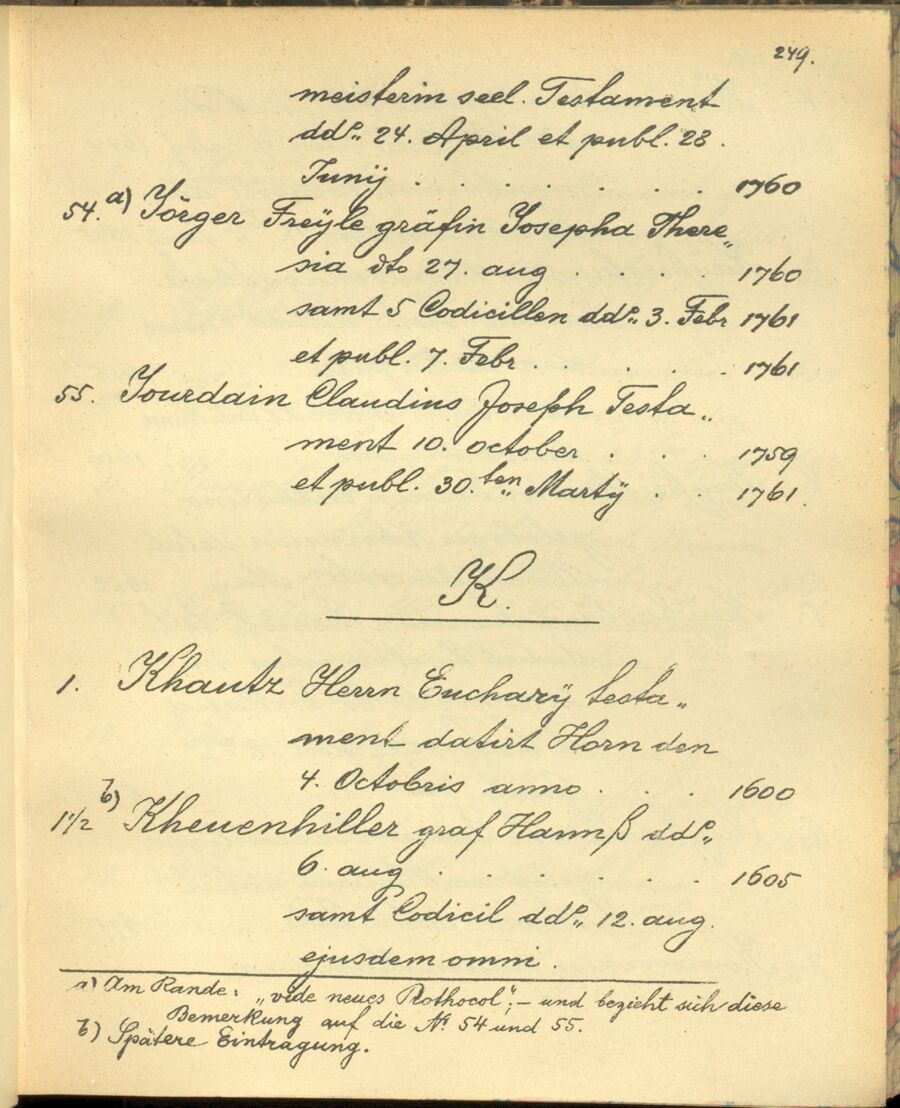 249.
meisterin seel. Testament
ddº„ 24. April et publ. 28.
Junÿ . . . . . . . 1760
54. a) Jörger Freÿle gräfin Josepha There„
sia dto 27. aug . . . . 1760
samt 5 Codicillen ddº„ 3. Febr 1761
et publ. 7. Febr . . . . 1761
55. Jourdain Claudius Joseph Testa„
ment 10. october . . . 1759
et publ. 30.ten„ Martÿ . . 1761.
K.
1. Khautz Herrn Eucharÿ testa„
ment datirt Horn den
4. Octobris anno . . . 1600
1 1/2 b) Kheuenhiller graf Hannß ddº„
6. aug . . . . . . 1605
samt Codicil ddº„ 12. aug.
ejusdem omni .
a) Am Rande: „vide neues Prothocol“; – und bezieht sich diese
Bemerkung auf die Nº 54 und 55.
b) Spätere Eintragung.